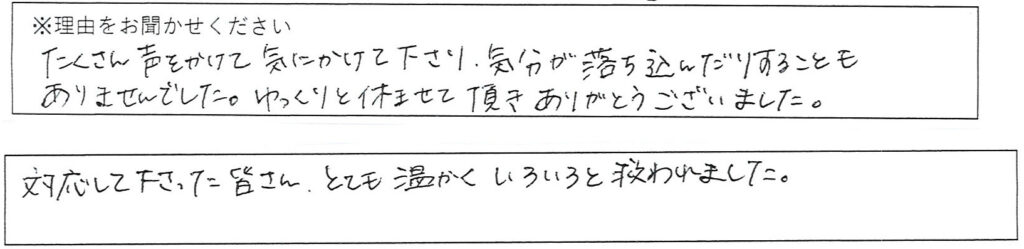 ※理由をお聞かせください
たくさん声をかけて気にかけて下さり、気分が落ち込んだりすることも
ありませんでした。ゆっくりと休ませて頂きありがとうございました。
対応して下さった皆さん、とても温かくいろいろと救われました。